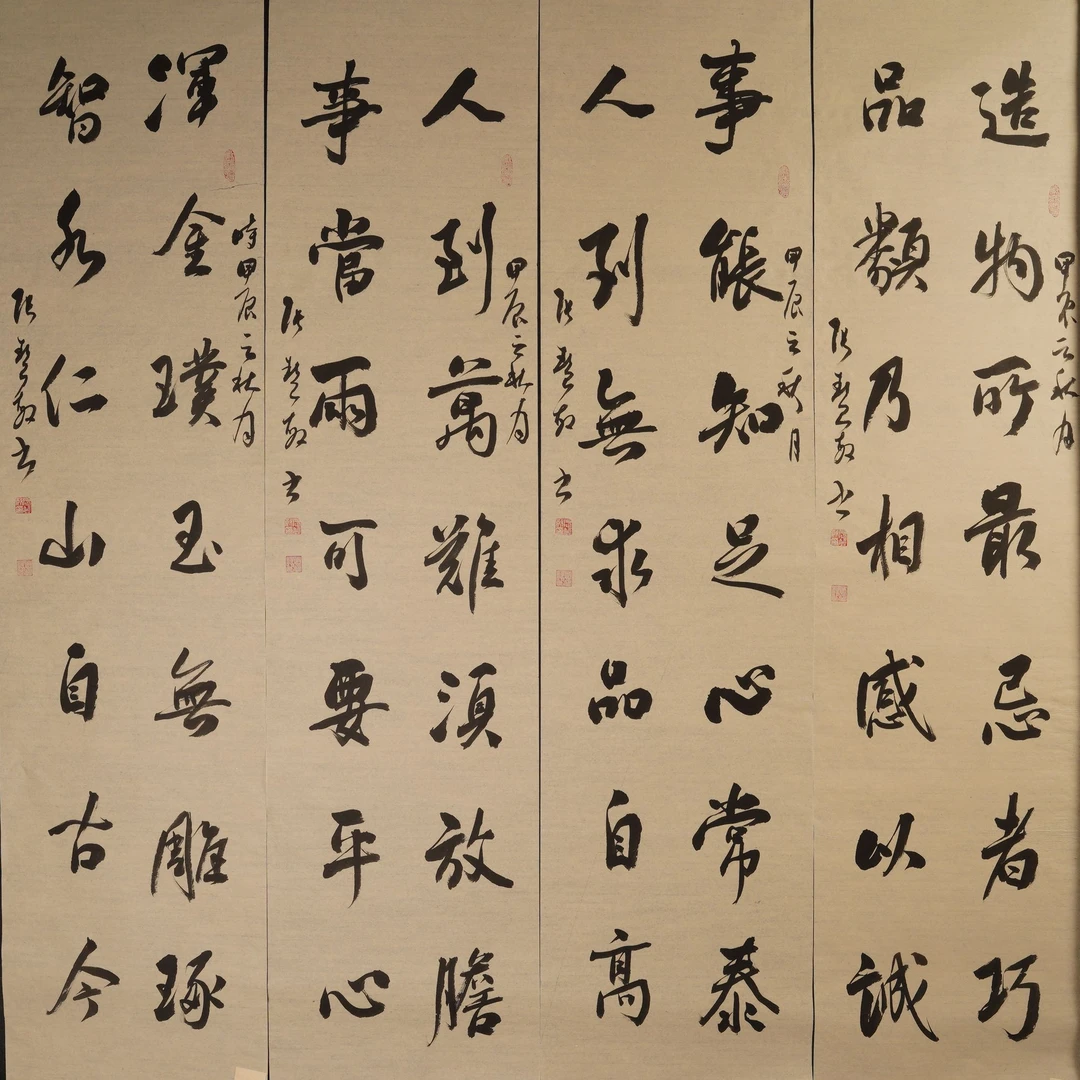 甲辰之秋月
造物所最忌者巧
品類乃相感以誠
張 書
甲辰之秋月
事能知足心常泰
人到無求品自高
張 書
甲辰之秋月
人到萬難須放膽
事當兩可要平心
張 書
時甲辰之秋月
渾金璞玉無雕琢
智水仁山自古今
張 書